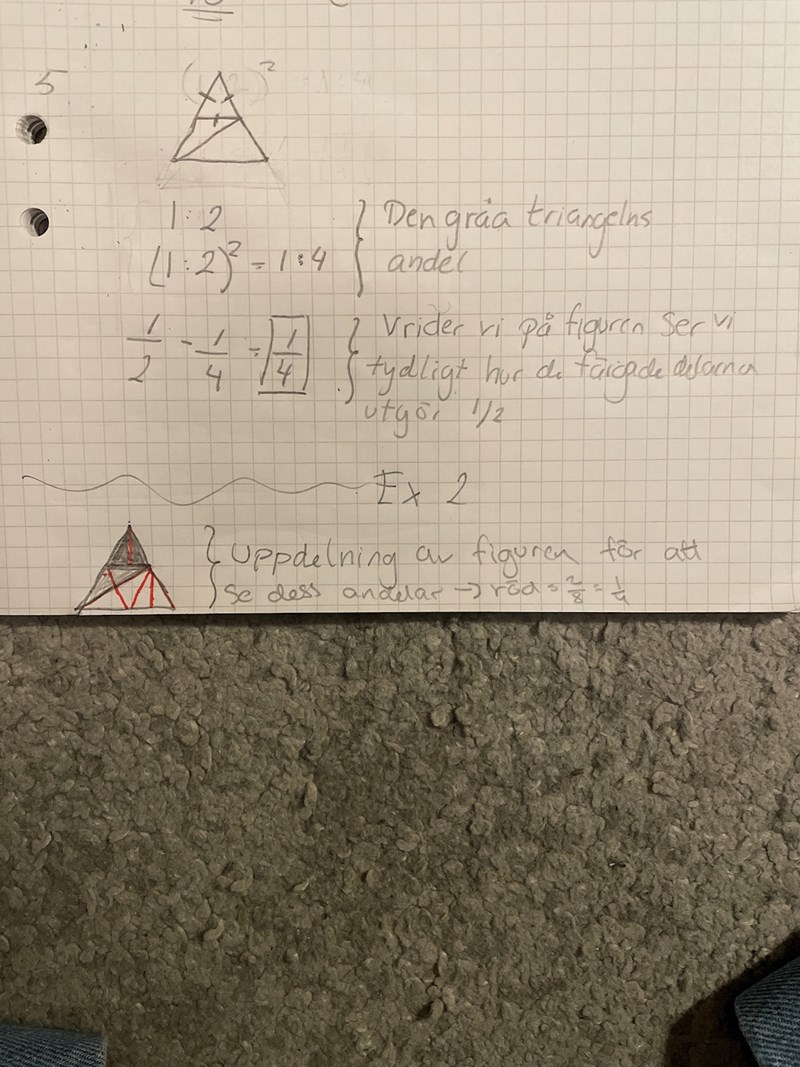 5
1:2
(1:2)² = 1:4
Den gråa triangelns
andel
1/2 - 1/4 = 1/4
Vrider vi på figuren ser vi
tydligt hur de färgade delarna
utgör 1/2
Ex 2
Uppdelning av figuren för att
se dess andelar → röd = 2/8 = 1/4